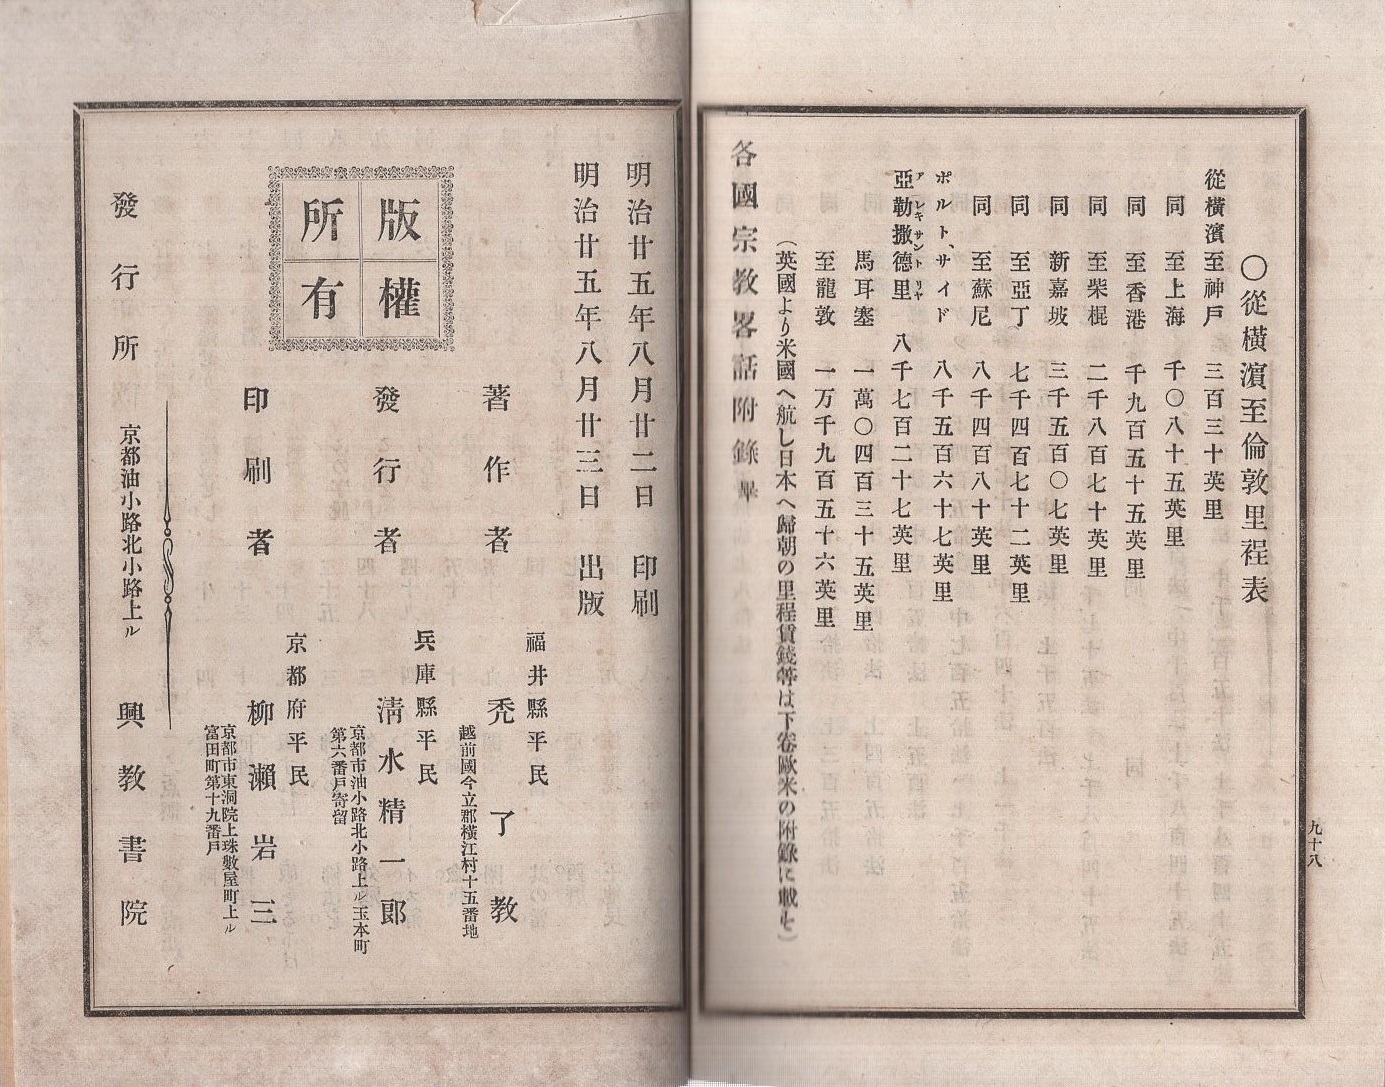 〇從橫濱至倫敦里程表
從橫濱至神戶 三百三十英里
同 至上海 千〇八十五英里
同 至香港 千九百五十五英里
同 至柴棍 二千八百七十英里
同 新嘉坡 三千五百〇七英里
同 至亞丁 七千四百七十二英里
同 至蘇尼 八千四百八十英里
ポルト、サイド 八千五百六十七英里
亞勒撒德里 八千七百二十七英里
アレキサントリヤ
馬耳塞 一萬〇四百三十五英里
至龍敦 一万千九百五十六英里
(英國より米國へ航し日本へ歸朝の里程賃錢等は下卷歐米の附錄に載せ)
各國宗教畧話附錄畢
九十八
明治廿五年八月廿二日 印刷
明治廿五年八月廿三日 出版
版權所有
福井縣平民
著作者 禿了教
越前國今立郡橫江村十五番地
兵庫縣平民
發行者 淸水精一郞
京都市油小路北小路上ル玉本町
第六番戶寄留
京都府平民
印刷者 柳瀨岩三
京都市東洞院上珠數屋町上ル
富田町第十九番戶
發行所 京都油小路北小路上ル 興教書院